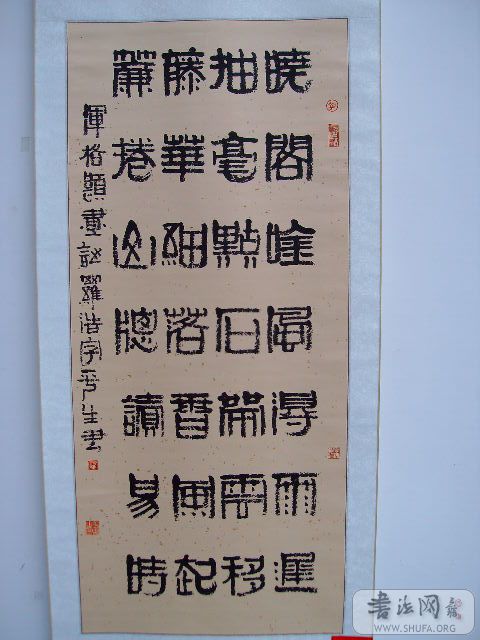 曉閣得雨遲
抽毫點石帶雲移
藤華細落香風起
簾捲山牕讀易時
惲格題畫詩羅浩字平生書
书法网
WWW.SHUFA.ORG